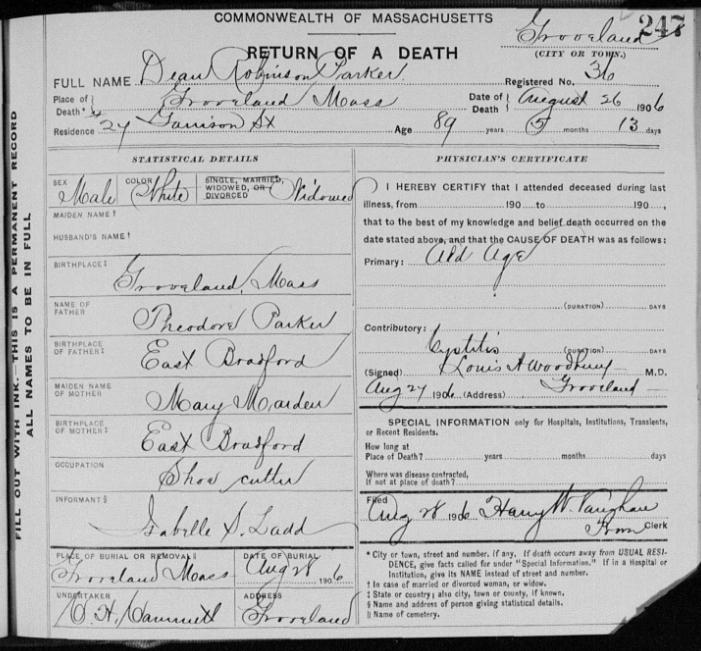 COMMONWEALTH OF MASSACHUSETTS
247
RETURN OF A DEATH
Groveland
(CITY OR TOWN.)
FULL NAME Dean Robinson Parker
Registered No. 36
Place of Death* Groveland Mass
Date of Death August 26 1906
Residence 27 Garrison St Age 89 years 5 months 13 days
FILL OUT WITH INK.—THIS IS A PERMANENT RECORD
ALL NAMES TO BE IN FULL
STATISTICAL DETAILS
SEX Male
COLOR White
SINGLE, MARRIED, WIDOWED, OR DIVORCED Widowed
MAIDEN NAME†
HUSBAND'S NAME†
BIRTHPLACE‡
Groveland, Mass
NAME OF FATHER
Theodore Parker
BIRTHPLACE OF FATHER‡
East Bradford
MAIDEN NAME OF MOTHER
Mary Marden
BIRTHPLACE OF MOTHER‡
East Bradford
OCCUPATION
Shoe cutter
INFORMANT§
Isabelle S. Ladd
PLACE OF BURIAL OR REMOVAL‖
Groveland Mass
DATE OF BURIAL
Aug 28 1906
UNDERTAKER
ADDRESS
Groveland
PHYSICIAN'S CERTIFICATE
I HEREBY CERTIFY that I attended deceased during last
illness, from 190 to 190 ,
that to the best of my knowledge and belief death occurred on the
date stated above, and that the CAUSE OF DEATH was as follows:
Primary: Old Age
(DURATION) DAYS
Contributory:
Cystitis (DURATION) DAYS
(Signed) Louis A Woodbury M.D.
Aug 27 1906 (Address) Groveland
SPECIAL INFORMATION only for Hospitals, Institutions, Transients,
or Recent Residents.
How long at
Place of Death? years months days
Where was disease contracted,
If not at place of death?
Filed
Aug 28 1906 Harry W. Vaughan
Town Clerk
* City or town, street and number, if any. If death occurs away from USUAL RESI-
DENCE, give facts called for under "Special Information." If in a Hospital or
Institution, give its NAME instead of street and number.
† In case of married or divorced woman, or widow.
‡ State or country; also city, town or county, if known.
§ Name and address of person giving statistical details.
‖ Name of cemetery.